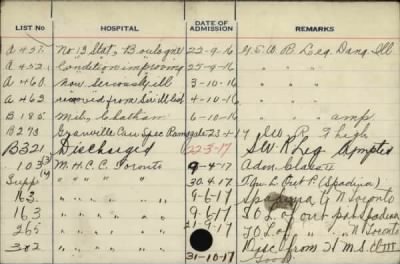 LIST NO HOSPITAL DATE OF ADMISSION REMARKS
A 457. No 13 Stat, Boulogne 22-9-16 G.S.W. R Leg Dang Ill
A 452. Condition improving 25-9-16 " " "
A 460. now seriously ill 3-10-16 " " "
A 463 removed from Sir ill list 4-10-16 " " "
B 195. Mil, Chatham 6-10-16 " " amp
B 273 Granville Can Spec Ramsgate 23-2-17 SW R Thigh
B321 Discharged 22-3-17 SW R Leg Amptd
103 M.H.C.C. Toronto 9-4-17 Adm Class II
Supp " " " " 30.4.17 (Spadina)
163. " " " " 9-6-17 Spadina N Toronto
163 " " " " 9-6-17 T O L of out pts Spadina
265 " " " " 21-9-17 T O L of " " N Toronto
302 " " " " Disc from H M S. Cl III
31-10-17